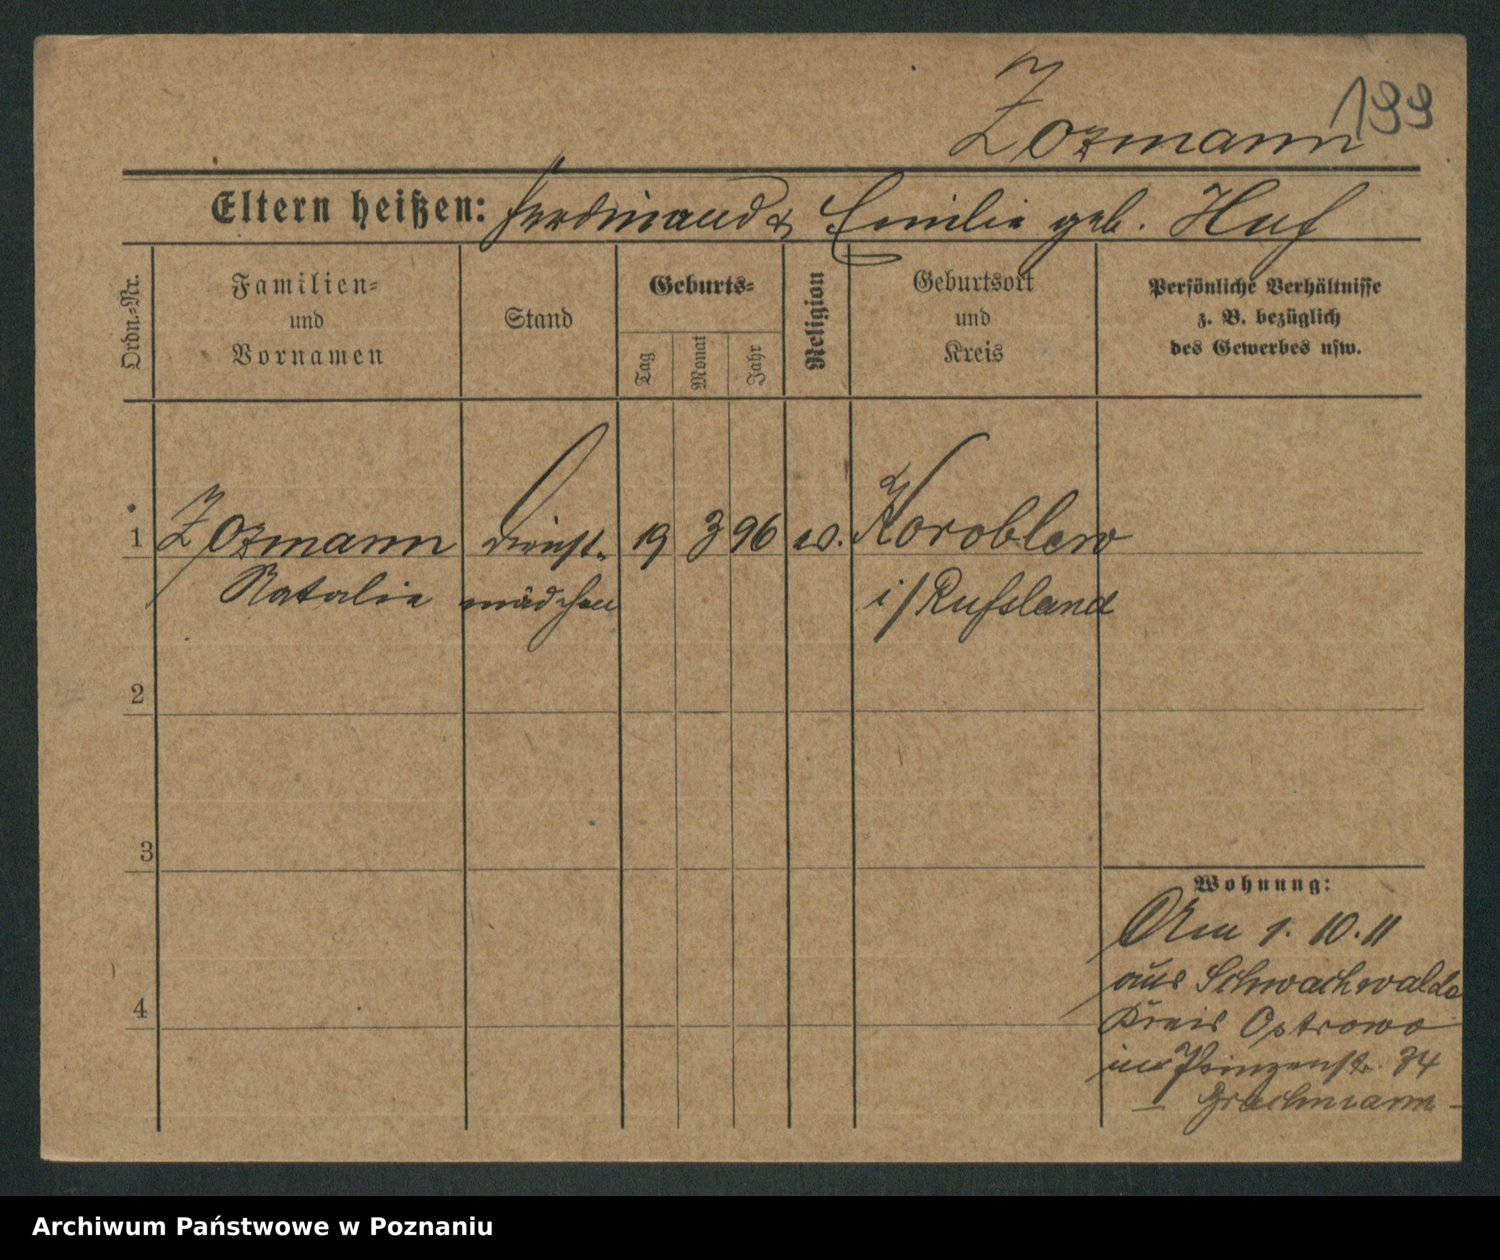 199
Zozmann
Eltern heißen: Ferdinand & Emilie geb. Huf
Ordn.-Nr.
Familien-
und
Vornamen
Stand
Geburts-
Tag
Monat
Jahr
Religion
Geburtsort
und
Kreis
Persönliche Verhältnisse
z. B. bezüglich
des Gewerbes usw.
1 Zozmann Dienst- 19 3 96 ev. Koroblew
Natalie mädchen i/Rußland
2
3
4
Wohnung:
Am 1. 10. 11
aus Schwachwalde
Kreis Ostrowo
Prinzenstr. 34
Archiwum Państwowe w Poznaniu